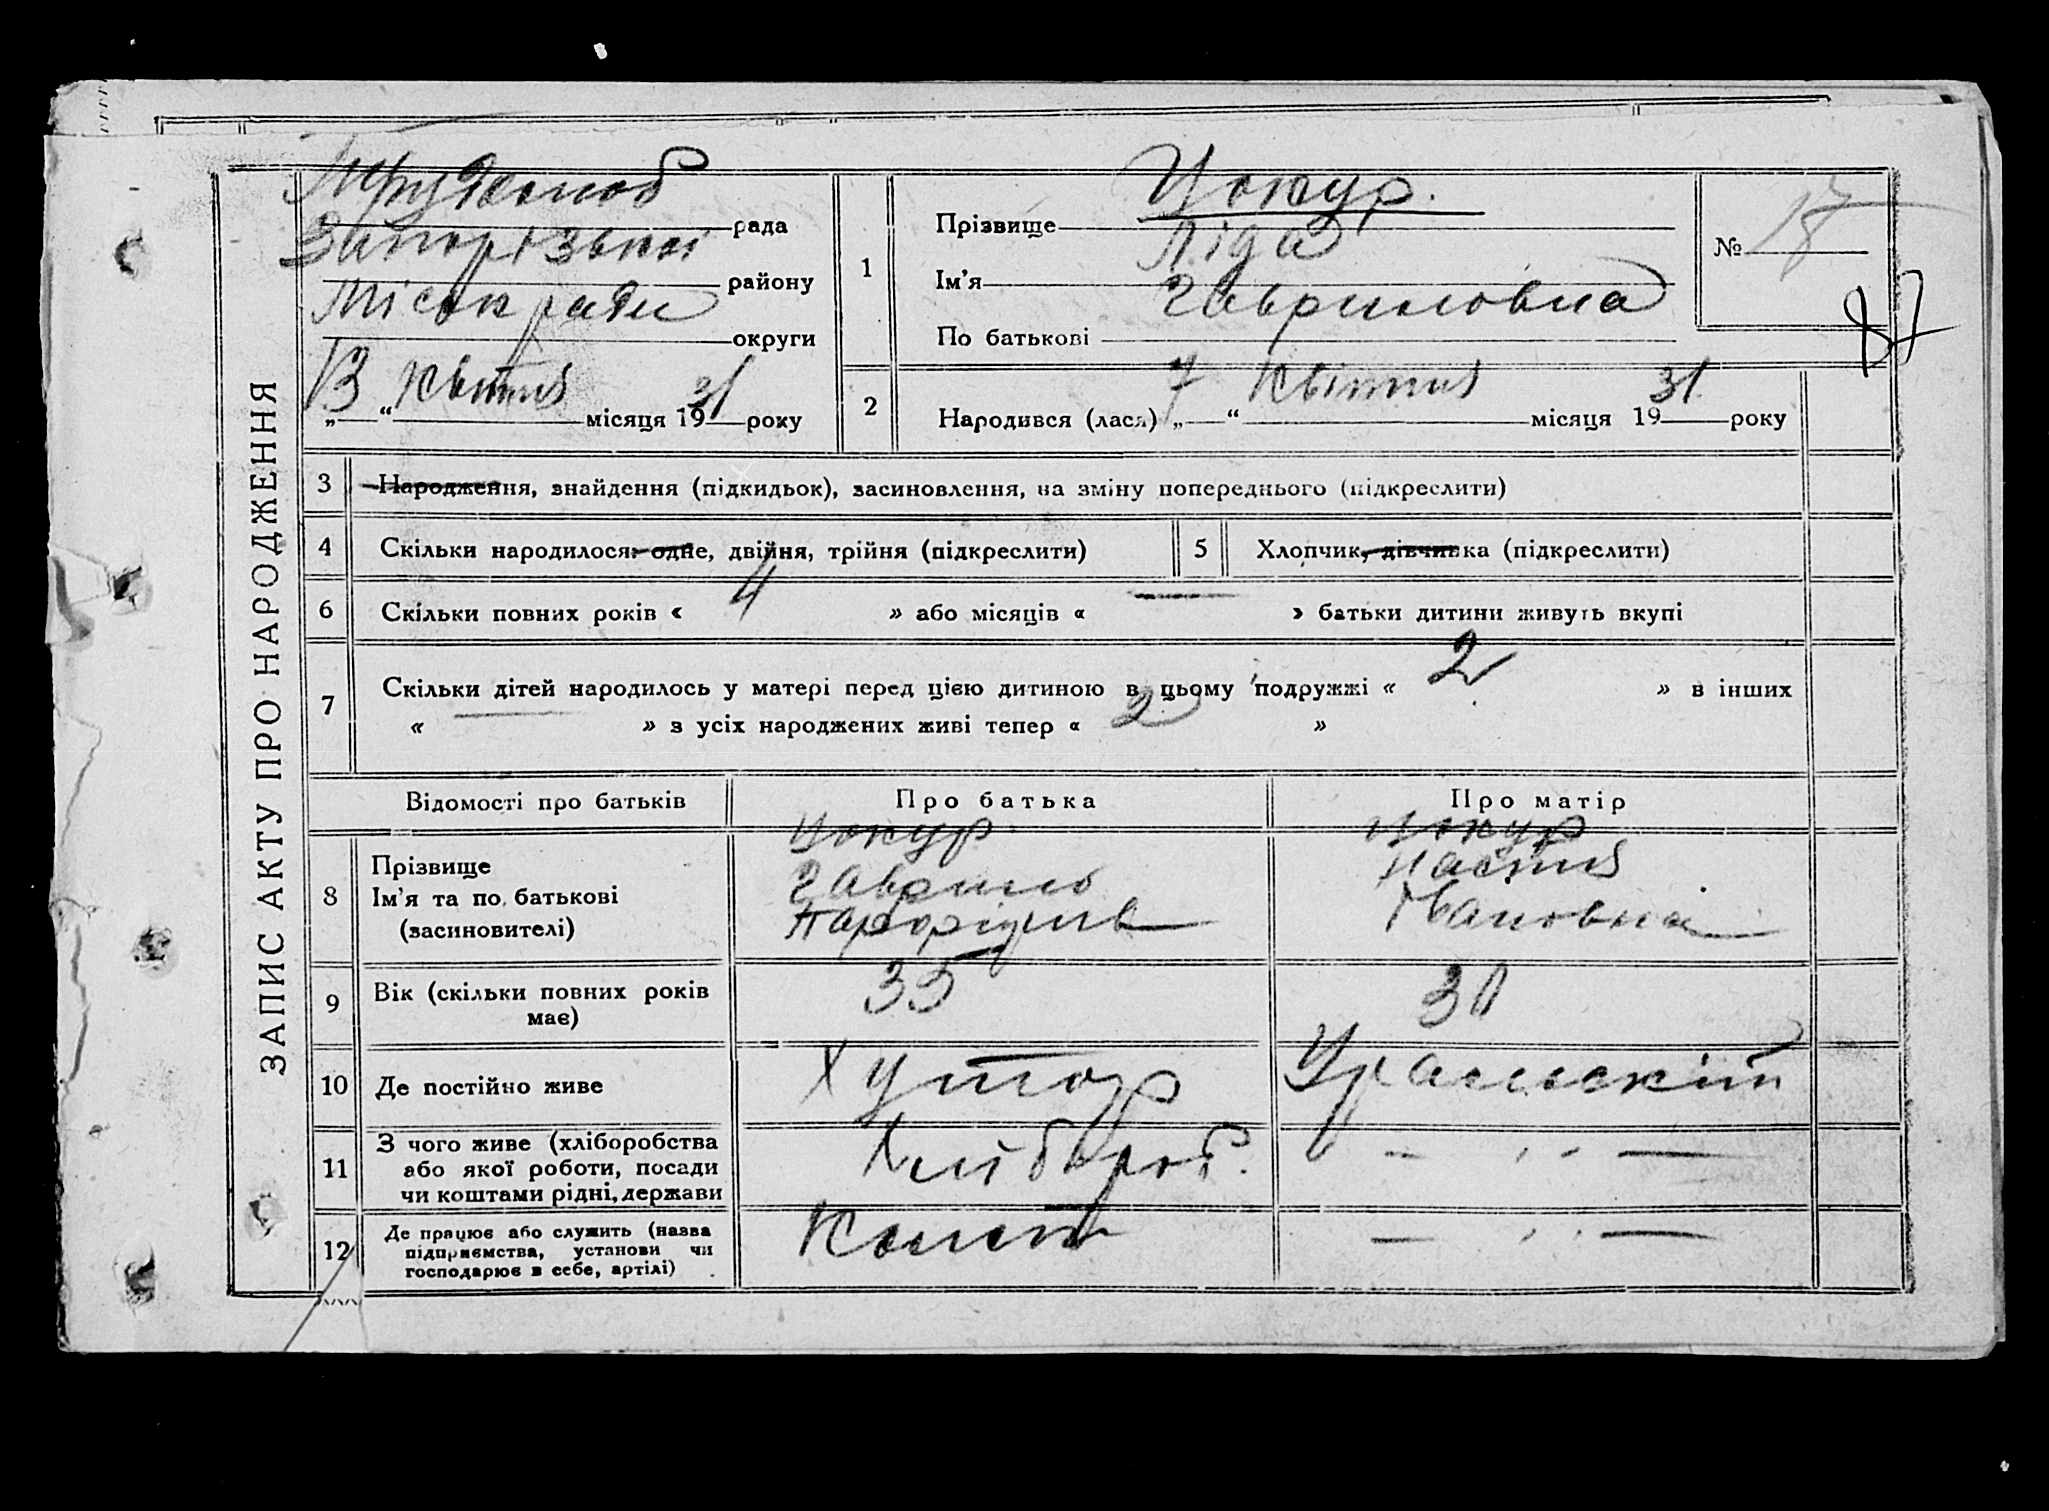 ЗАПИС АКТУ ПРО НАРОДЖЕННЯ
Трудолюб рада
Запорізької району
Міськради округи
13 “ Квітня місяця 1931 року
1
Прізвище Цокур.
Ім'я Ліда
По батькові Гавриловна
№ 17
17
2
Народився (лася) „ 7 “ Квітня місяця 1931 року
3 Народження, знайдення (підкидьок), засиновлення, на зміну попереднього (підкреслити)
4 Скільки народилося: одне, двійня, трійня (підкреслити)
5 Хлопчик, дівчинка (підкреслити)
6 Скільки повних років « 4 » або місяців « — » батьки дитини живуть вкупі
7 Скільки дітей народилось у матері перед цією дитиною в цьому подружжі « 2 » в інших
« — » з усіх народжених живі тепер « 2 »
Відомості про батьків Про батька Про матір
8 Прізвище Цокур Цокур
Ім'я та по батькові Гаврило Настя
(засиновителі) Івановна
9 Вік (скільки повних років має) 35 30
10 Де постійно живе Хутор Уральский
11 З чого живе (хліборобства
або якої роботи, посади
чи коштами рідні, держави
Хлібороб. — ,, —
12 Де працює або служить (назва
підприємства, установи чи
господарює в себе, артілі)
— ,, —